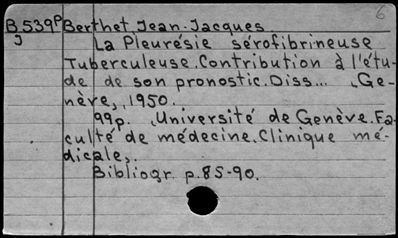 6
B.539P Berthet Jean-Jacques
J La Pleurésie sérofibrineuse
Tuberculeuse.Contribution à l'étu-
de de son pronostic.Diss... ,Ge-
nève,,1950.
99p. ,Université de Genève.Fa-
culté de médecine.Clinique mé-
dicale,.
Bibliogr p.85-90.